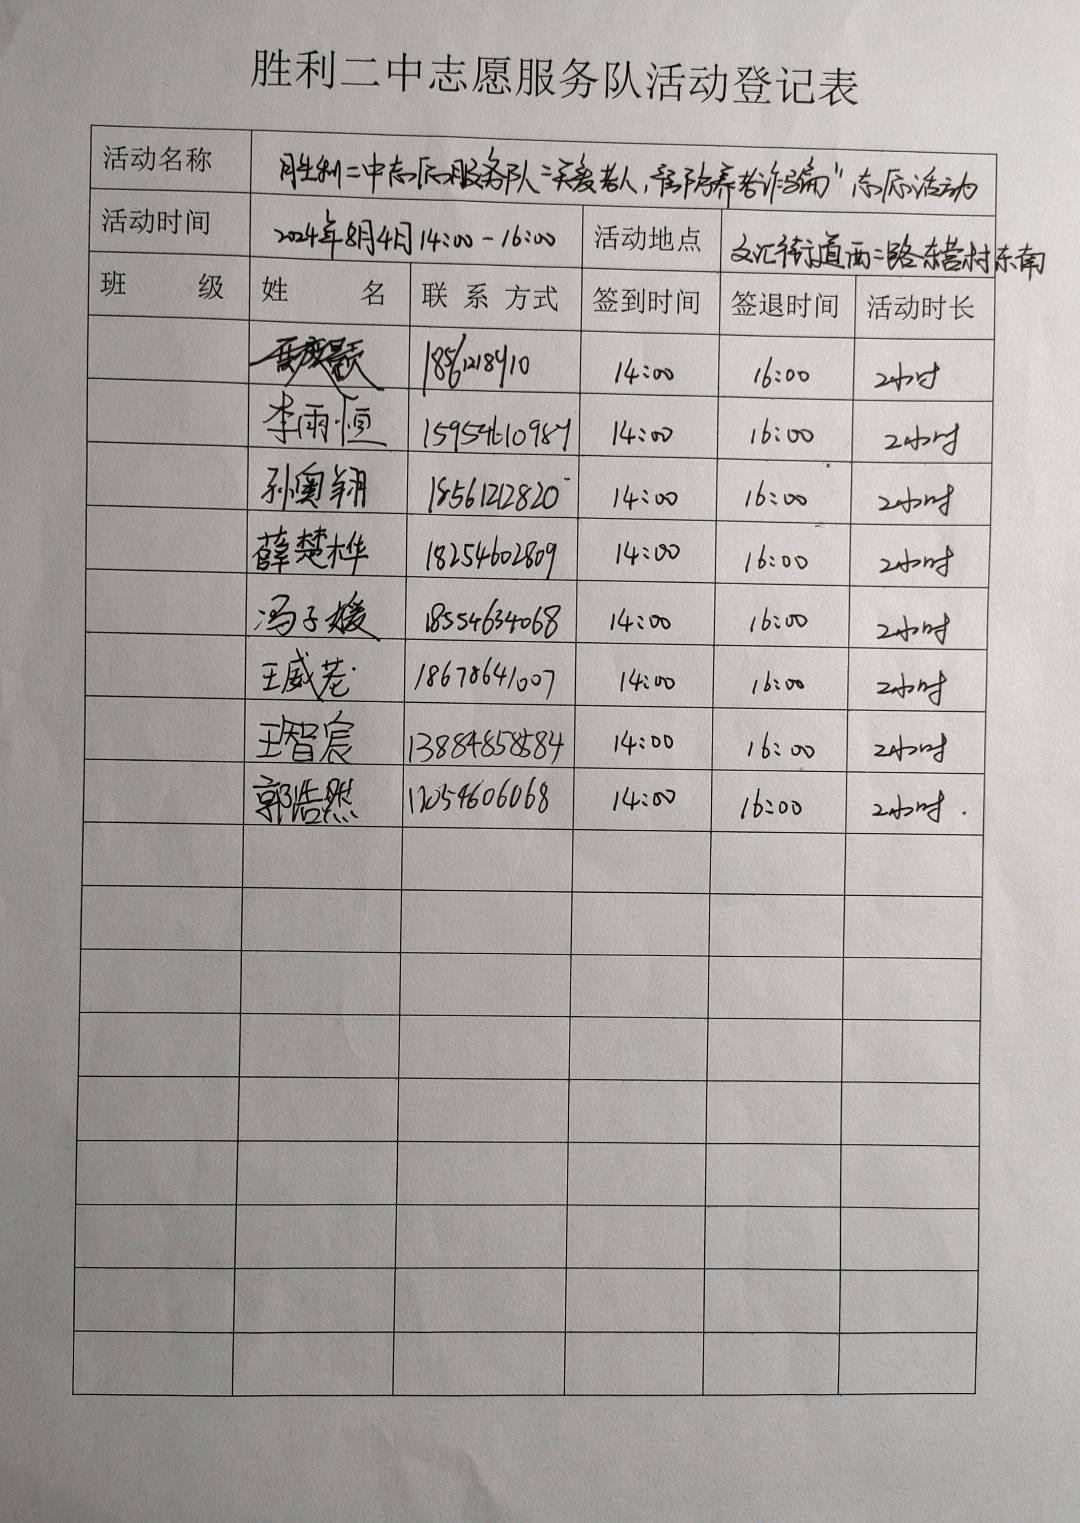 胜利二中志愿服务队活动登记表
活动名称 胜利二中志愿服务队"关爱老人，谨防养老诈骗"志愿活动
活动时间 2024年8月4日14:00-16:00 活动地点 文汇街道西二路东营村东南
班 级 姓 名 联系方式 签到时间 签退时间 活动时长
14:00 16:00 2小时
李雨恒 15954610987 14:00 16:00 2小时
孙奥翔 18561212820 14:00 16:00 2小时
薛楚桦 18254602809 14:00 16:00 2小时
冯子媛 18554634068 14:00 16:00 2小时
王威 18678641007 14:00 16:00 2小时
王智宸 13884858584 14:00 16:00 2小时
郭浩然 14:00 16:00 2小时.